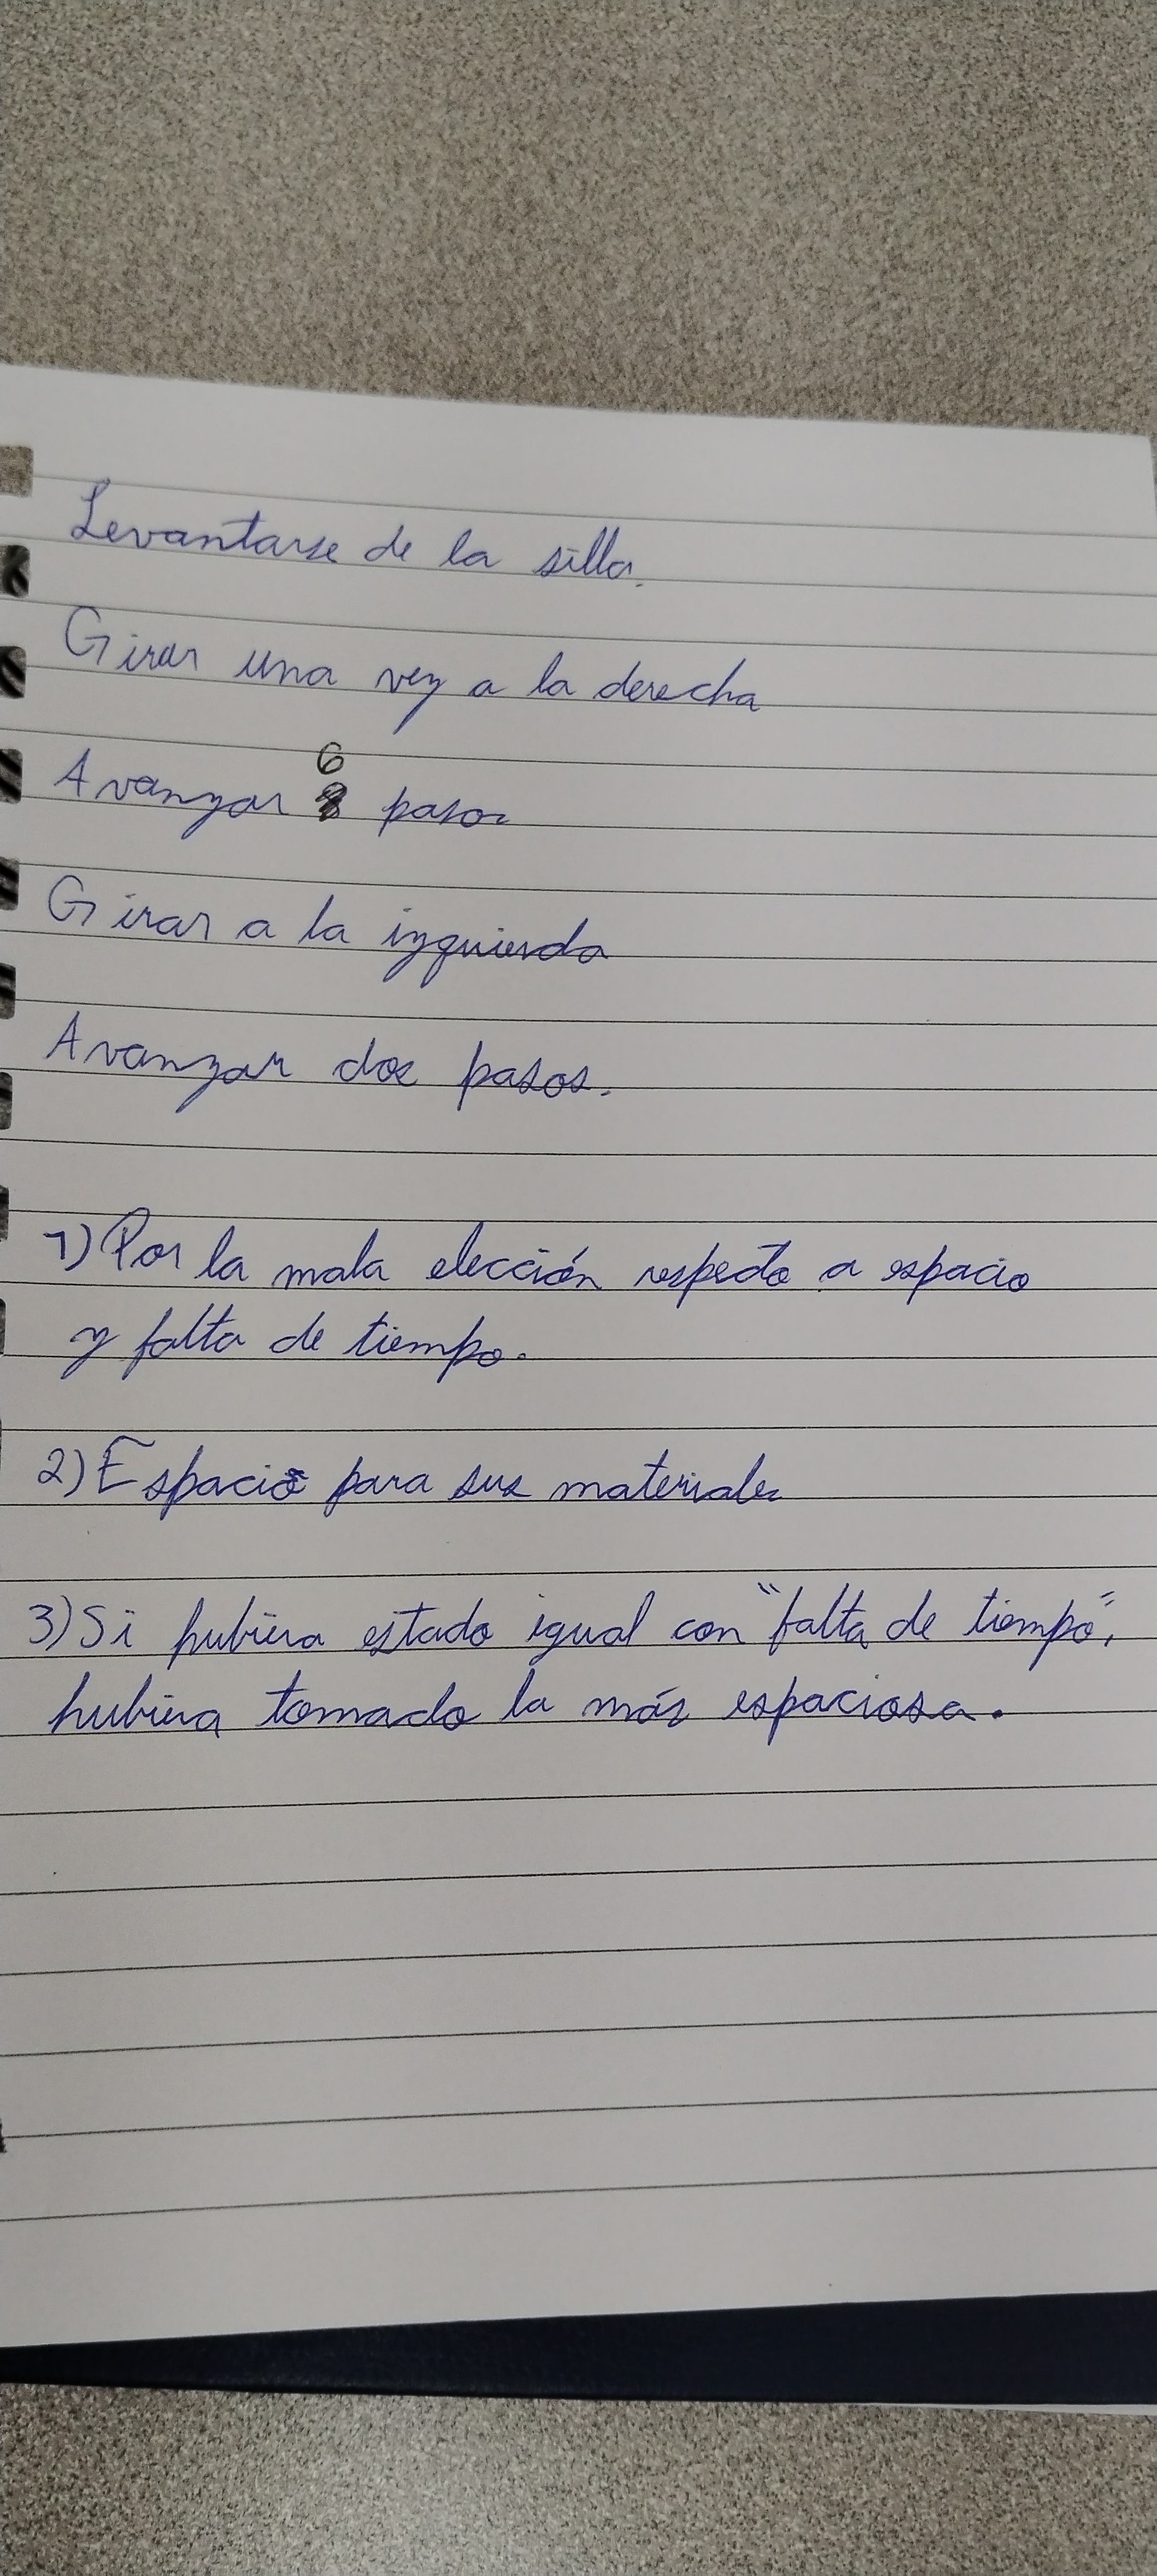 Levantarse de la silla.
Girar una vez a la derecha
6
Avanzar 8 pasos
Girar a la izquierda
Avanzar dos pasos.
1) Por la mala elección respecto a espacio
y falta de tiempo.
2) Espacio para sus materiales
3) Si hubiera estado igual con "falta de tiempo",
hubiera tomado la más espaciosa.